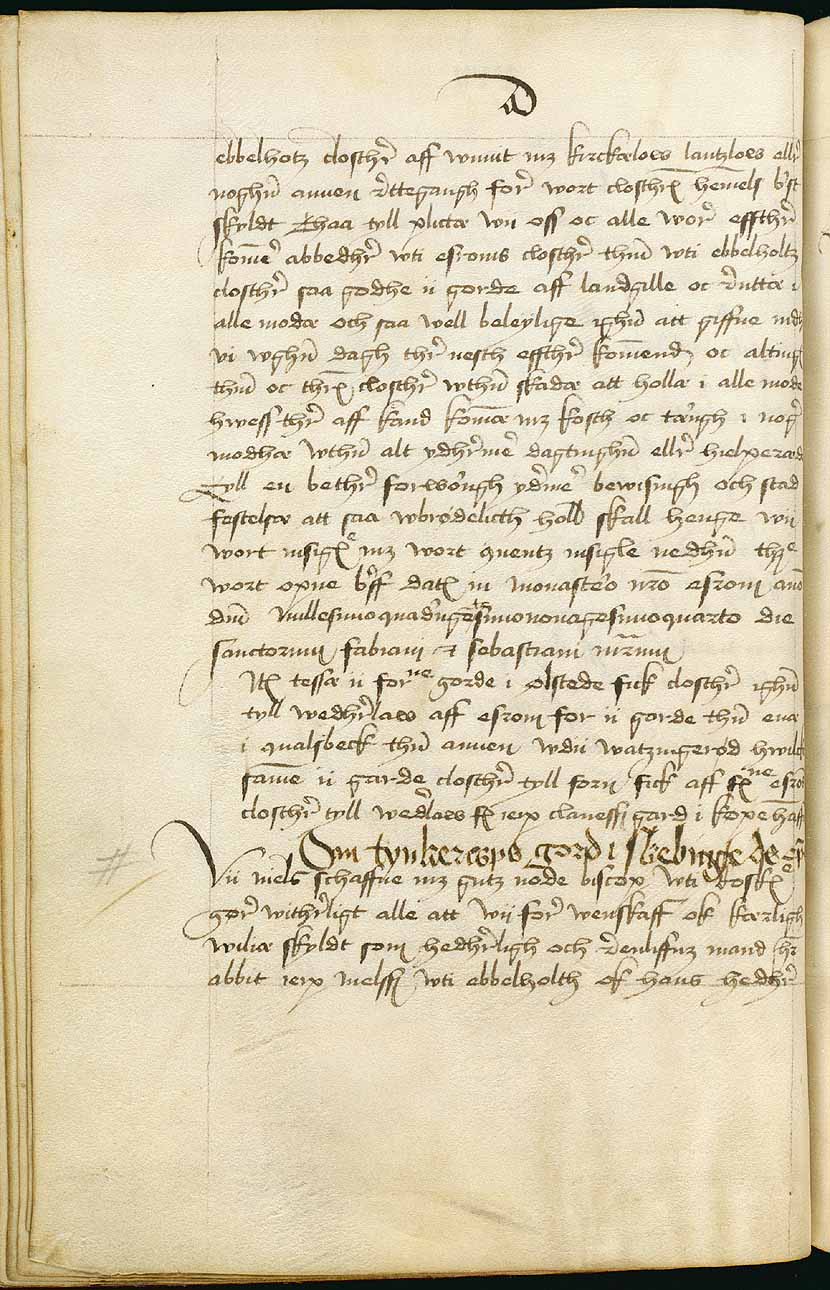 a
ebbelholtz closthr̄ aff wunit mz kirckeloes lantzloes ellr̄
noghn̄ annen r̄ttegangh for̄ wort closthr̄s hemels br̄st
skyldt Thaa tyll plictæ wii oss oc alle wor̄ effthr̄
kom̄e abbedhr̄ wti esroms closthr̄ thm̄ wti ebbelholtz
closthr̄ saa godhe ii gorde aff landgille oc r̄nttæ i
alle modæ och saa well beleylige ighn̄ att giffue indh
vi wghn̄ dagh thr̄ nesth effthr̄ kom̄end oc altingh
thm̄ oc thr̄s closthr̄ wthn̄ skadæ att hollæ i alle mode
hwess thr̄ aff kand kom̄æ mz kosth oc tær̄ngh i nogr̄
modhæ wthn̄ alt ydhr̄mer̄ dagtinghn̄ ellr̄ hielperæd
Tyll en bethr̄ forwor̄ngh yder̄mer̄ bewisingh och stad
festelsæ att saa wbrødelicth holl skall henge wii
wort insigle mz wort quentz insigle nedhn̄ thr̄e
wort opne br̄ff dat in monaster̄o nr̄o esrom ano
dn̄i millesimoquadringetesimononagesimoquarto die
sanctorum fabiani et sebastiani mr̄rum
Itē tessæ ii forne gorde i ølstede fick closthr̄ ighn̄
tyll wedhr̄law aff esrom for ii garde thn̄ enæ
i qualsbeck thn̄ annen wdii watzingerød hwilck
sam̄e ii garde closthr̄ tyll forn fick aff forne esrom
closthr̄ tyll wedr̄laws for iep clauessø gard i købehaffn
Om tynkerops gord i skebinge
Vii niels schaffue mz gutz node biscop wti roskle
gor̄ withr̄ligt alle att wii for̄ wenskaff ok kærligh
wiliæ skyldt som hedhr̄ligh och r̄enliffnz mand hr̄
abbit iep nielssøn wti ebbelholth ok hans hedhr̄